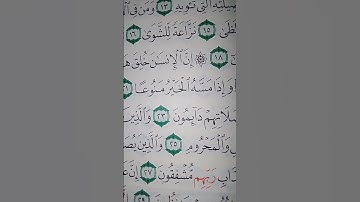 صِيلَتِهِ ٱلَّتِي تُـْٔوِيهِ ١٣ وَمَن فِي
ظَىٰ ١٥ نَزَّاعَةً لِّلشَّوَىٰ ١٦
١٨ ۞ إِنَّ ٱلْإِنسَٰنَ خُلِقَ هَ
وَإِذَا مَسَّهُ ٱلْخَيْرُ مَنُوعًا ٢١
لَاتِهِمْ دَآئِمُونَ ٢٣ وَٱلَّذِينَ
وَٱلْمَحْرُومِ ٢٥ وَٱلَّذِينَ يُصَ
ابِ رَبِّهِم مُّشْفِقُونَ ٢٧ إِنَّ عَ
٢٩